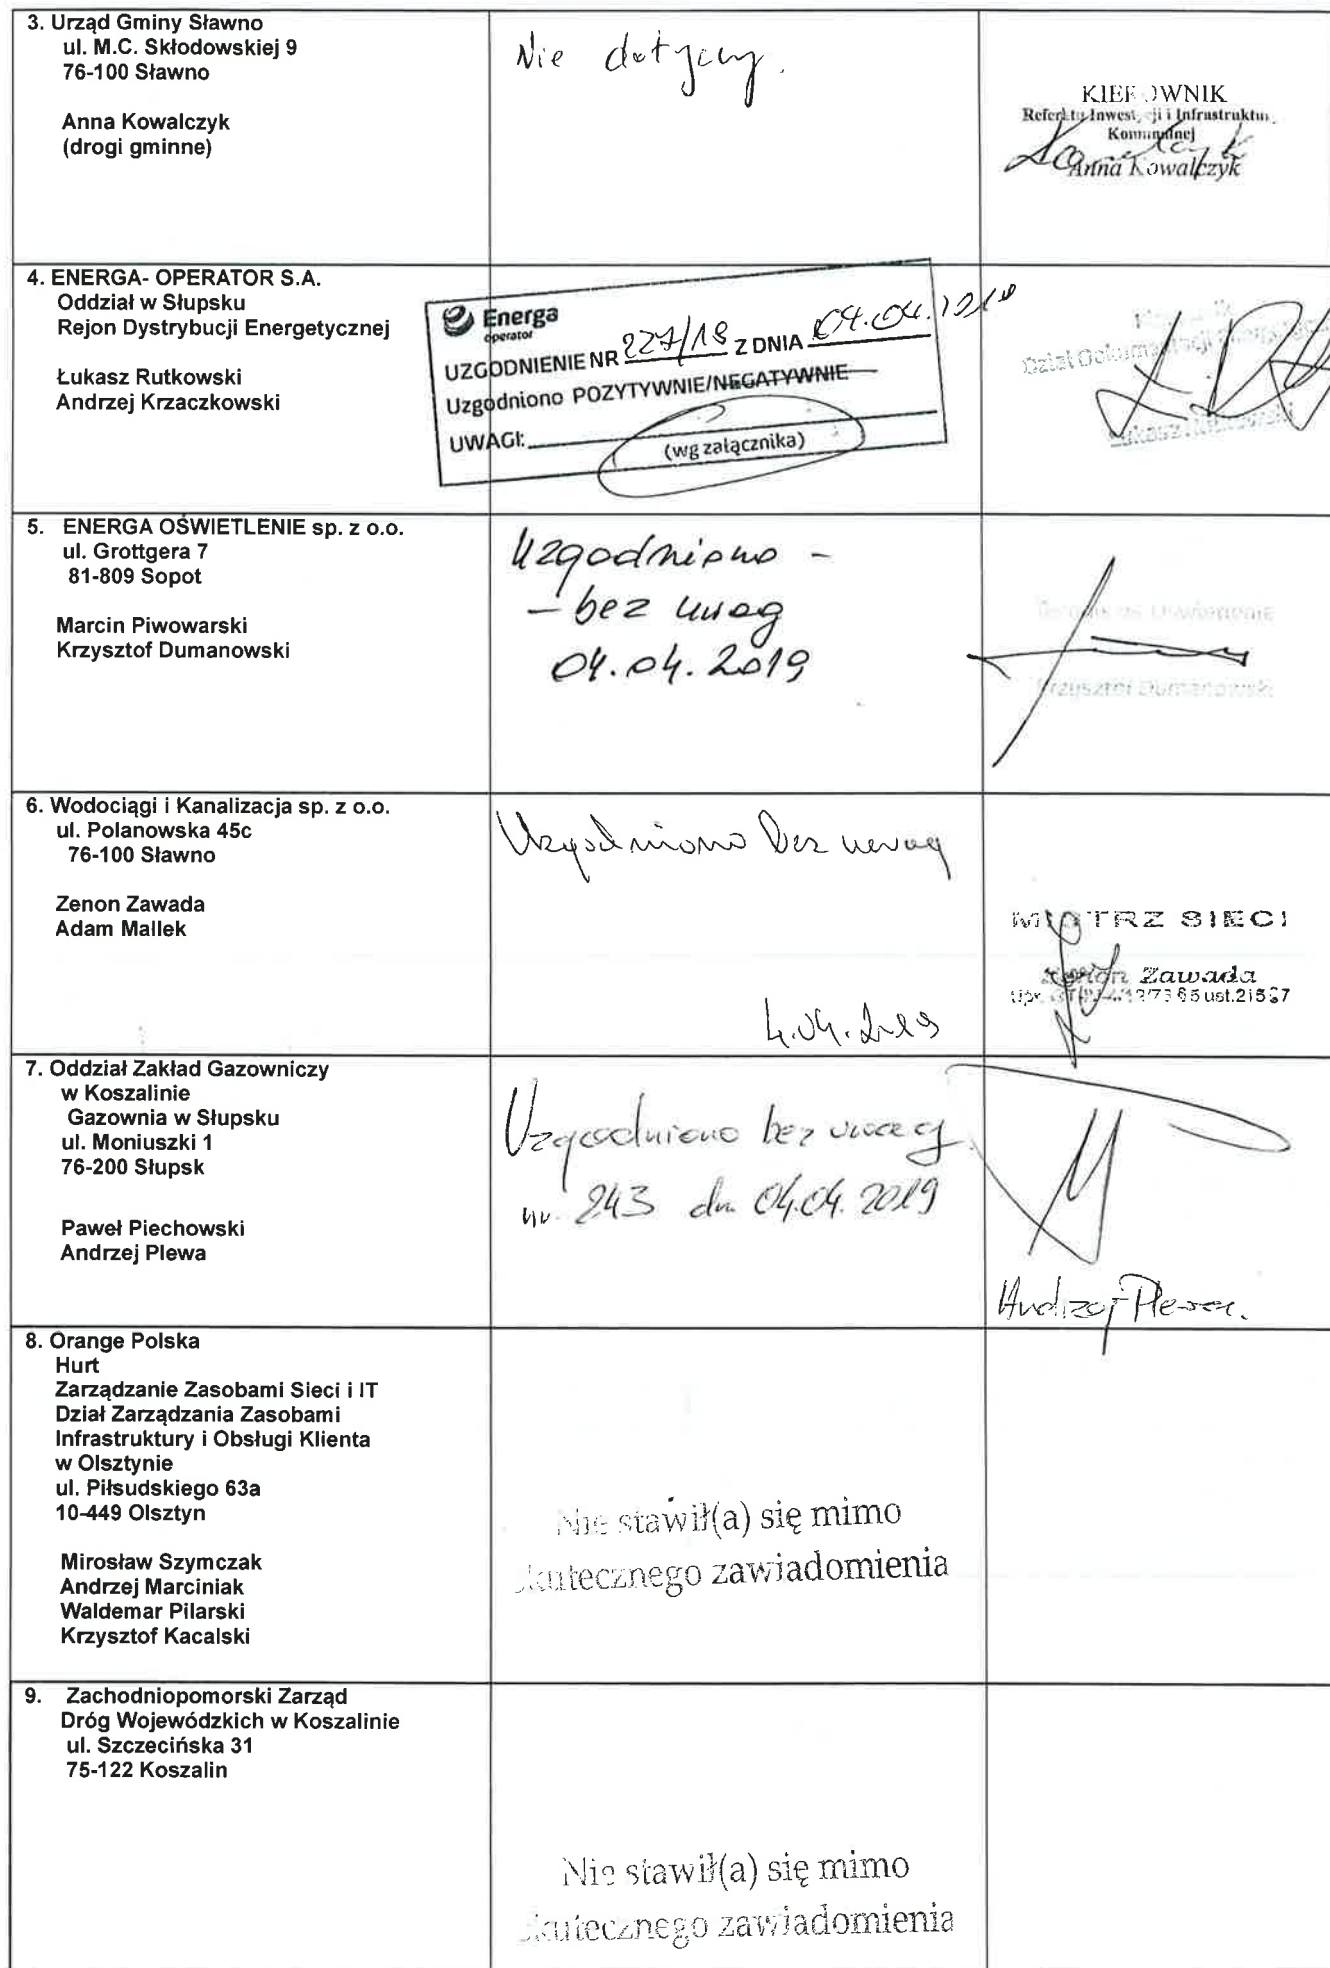 3. Urząd Gminy Sławno
ul. M.C. Skłodowskiej 9
76-100 Sławno
Anna Kowalczyk
(drogi gminne)
Nie dotyczy.
KIEROWNIK
Referatu Inwestycji i Infrastruktury
Komunalnej
Anna Kowalczyk
4. ENERGA- OPERATOR S.A.
Oddział w Słupsku
Rejon Dystrybucji Energetycznej
Łukasz Rutkowski
Andrzej Krzaczkowski
Energa
operator
UZGODNIENIE NR 227/19 Z DNIA 04.04.2019
Uzgodniono POZYTYWNIE/NEGATYWNIE
UWAGI:
(wg załącznika)
Dział Dokumentacji
Łukasz Rutkowski
5. ENERGA OŚWIETLENIE sp. z o.o.
ul. Grottgera 7
81-809 Sopot
Marcin Piwowarski
Krzysztof Dumanowski
Uzgodniono -
- bez uwag
04.04.2019
Krzysztof Dumanowski
6. Wodociągi i Kanalizacja sp. z o.o.
ul. Polanowska 45c
76-100 Sławno
Zenon Zawada
Adam Mallek
Uzgodniono bez uwag
4.04.2019
MISTRZ SIECI
Zenon Zawada
7. Oddział Zakład Gazowniczy
w Koszalinie
Gazownia w Słupsku
ul. Moniuszki 1
76-200 Słupsk
Paweł Piechowski
Andrzej Plewa
Uzgodniono bez uwag
nr 243 dn 04.04.2019
Andrzej Plewa.
8. Orange Polska
Hurt
Zarządzanie Zasobami Sieci i IT
Dział Zarządzania Zasobami
Infrastruktury i Obsługi Klienta
w Olsztynie
ul. Piłsudskiego 63a
10-449 Olsztyn
Mirosław Szymczak
Andrzej Marciniak
Waldemar Pilarski
Krzysztof Kacalski
Nie stawił(a) się mimo
skutecznego zawiadomienia
9. Zachodniopomorski Zarząd
Dróg Wojewódzkich w Koszalinie
ul. Szczecińska 31
75-122 Koszalin
Nie stawił(a) się mimo
skutecznego zawiadomienia